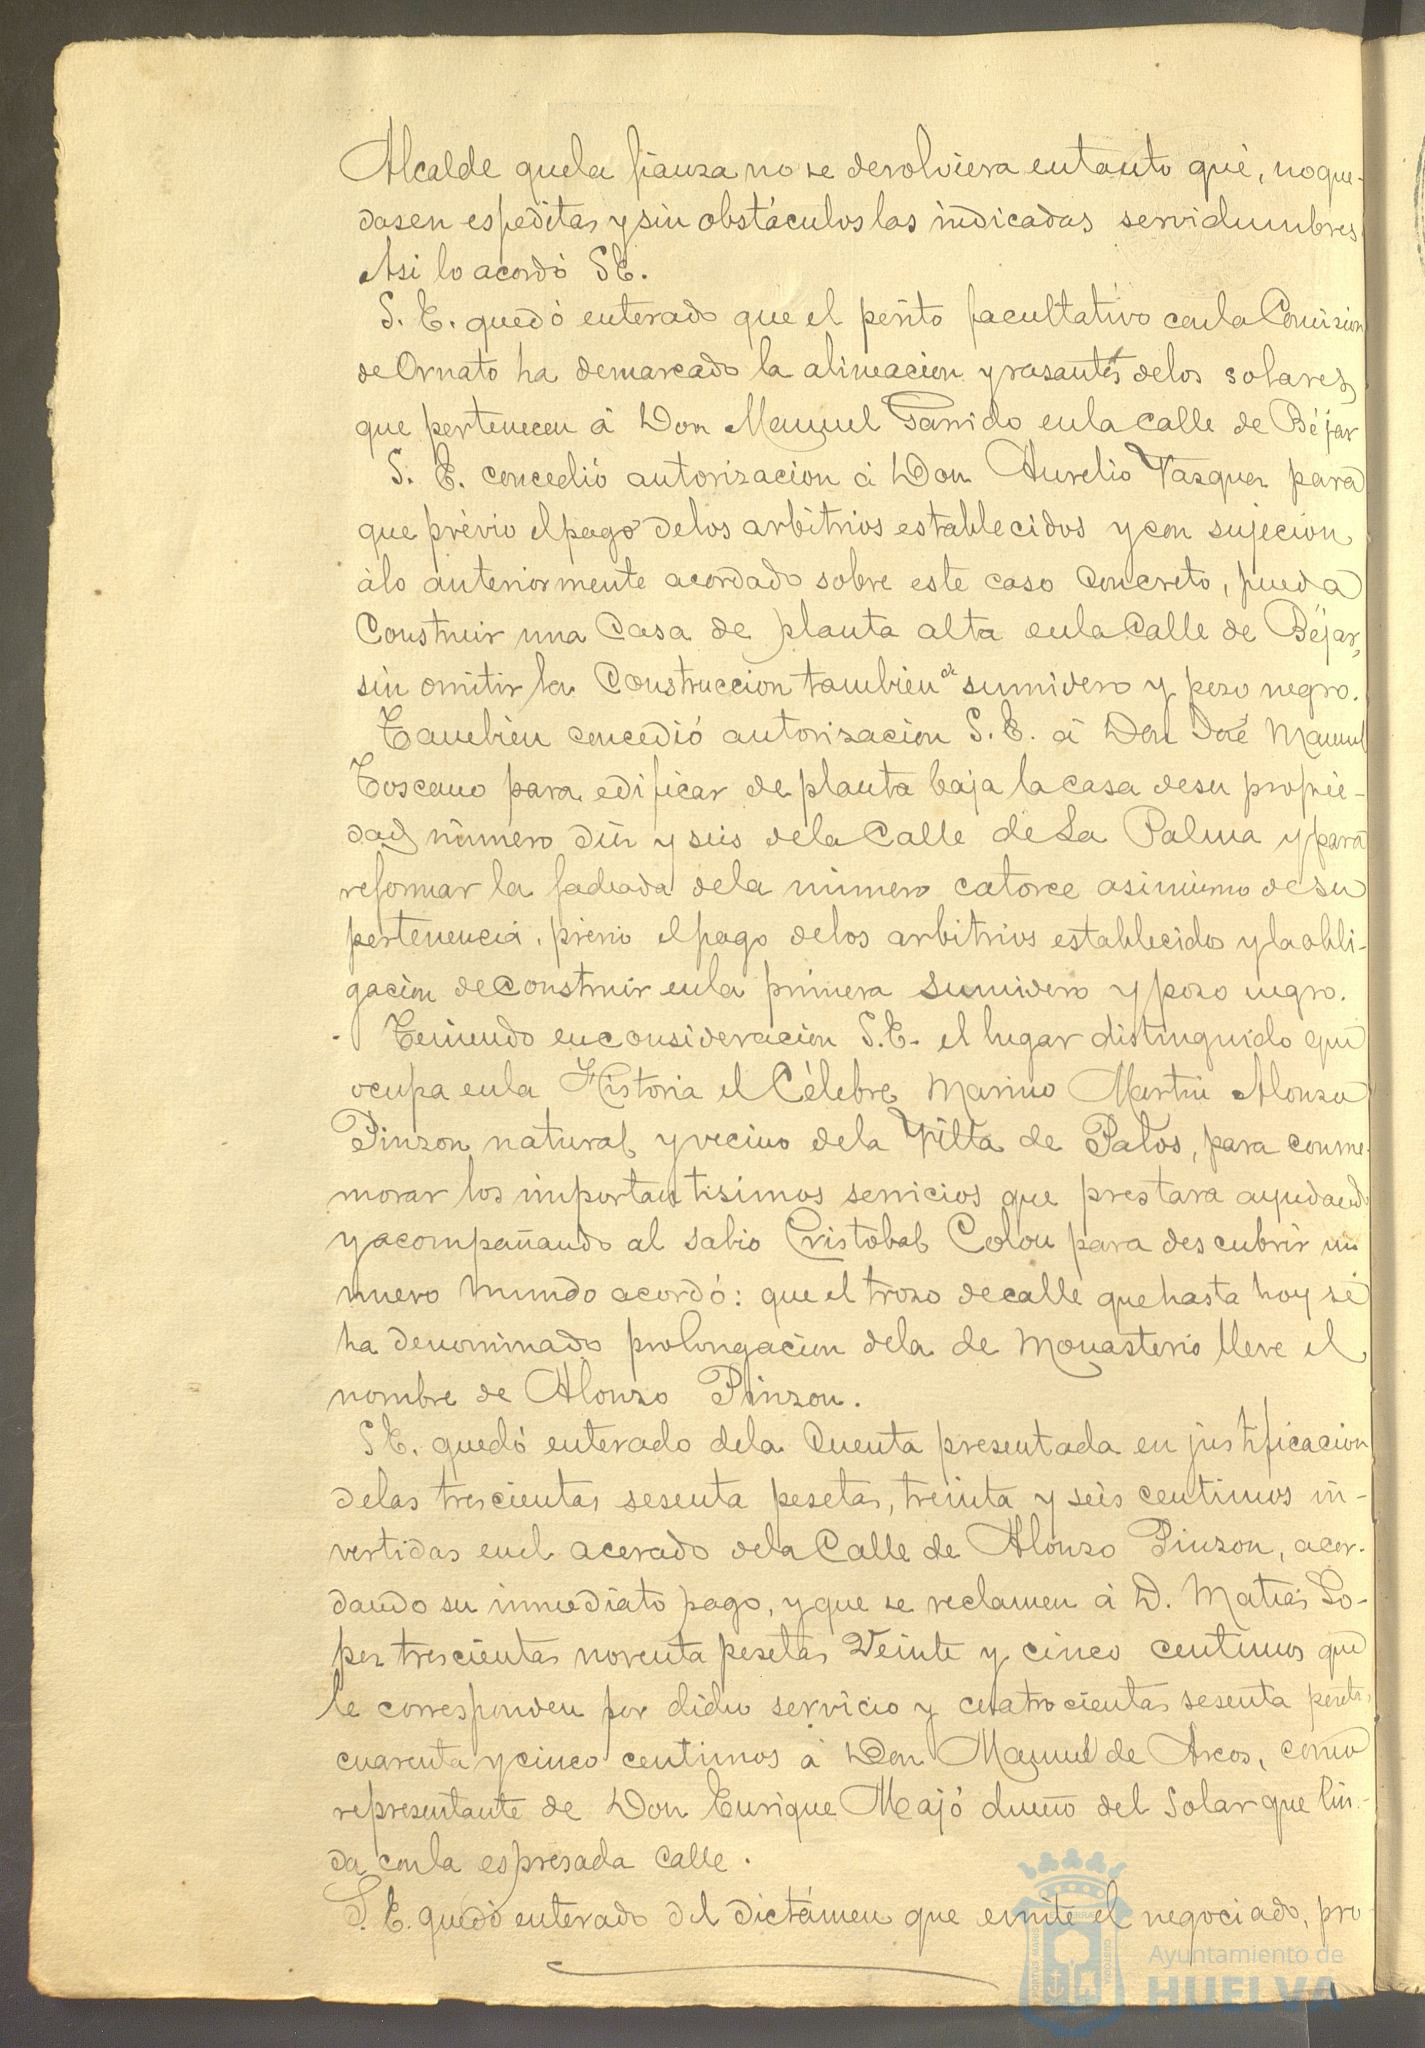 Alcalde que la fianza no se devolviera en tanto qué, no que-
dasen espeditas y sin obstáculos las indicadas servidumbres
Asi lo acordó S.E.
S. E. quedó enterado que el périto facultativo con la Comision
de Ornato ha demarcado la alineacion y rasantes de los solares
que pertenecen á Don Manuel Garrido en la calle de Béjar
S. E. concedió autorizacion á Don Aurelio Vazquez para
que prévio el pago de los arbitrios establecidos y con sujecion
á lo anteriormente acordado sobre este caso concreto, pueda
Construir una Casa de planta alta en la Calle de Béjar,
sin omitir la Construccion tambien de sumidero y pozo negro.
Tambien concedió autorizacion S. E. á Don José Manuel
Toscano para edificar de planta baja la casa de su propie-
dad número diez y seis de la Calle de La Palma y para
reformar la fachada de la número catorce asimismo de su
pertenencia, previo el pago de los arbitrios establecidos y la obli-
gacion de construir en la primera sumidero y pozo negro.
Teniendo en consideracion S.E. el lugar distinguido que
ocupa en la Historia el Célebre Marino Martin Alonso
Pinzon natural y vecino de la Villa de Palos, para conme-
morar los importantisimos servicios que prestara ayudando
y acompañando al sabio Cristobal Colon para descubrir un
nuevo mundo acordó: que el trozo de calle que hasta hoy se
ha denominado prolongacion de la de Monasterio lleve el
nombre de Alonzo Pinzon.
S.E. quedó enterado de la Cuenta presentada en justificacion
de las trescientas sesenta pesetas, treinta y seis centimos in-
vertidas en el acerado de la Calle de Alonzo Pinzon, acor-
dando su inmediato pago, y que se reclamen á D. Matias Lo-
pez trescientas noventa pesetas Veinte y cinco centimos que
le corresponden por dicho servicio y cuatrocientas sesenta pesetas,
cuarenta y cinco centimos á Don Manuel de Arcos, como
representante de Don Enrique Majó dueño del Solar que lin-
da con la espresada calle.
S. E. quedó enterado del dictámen que emite el negociado, pro
Ayuntamiento de
HUELVA